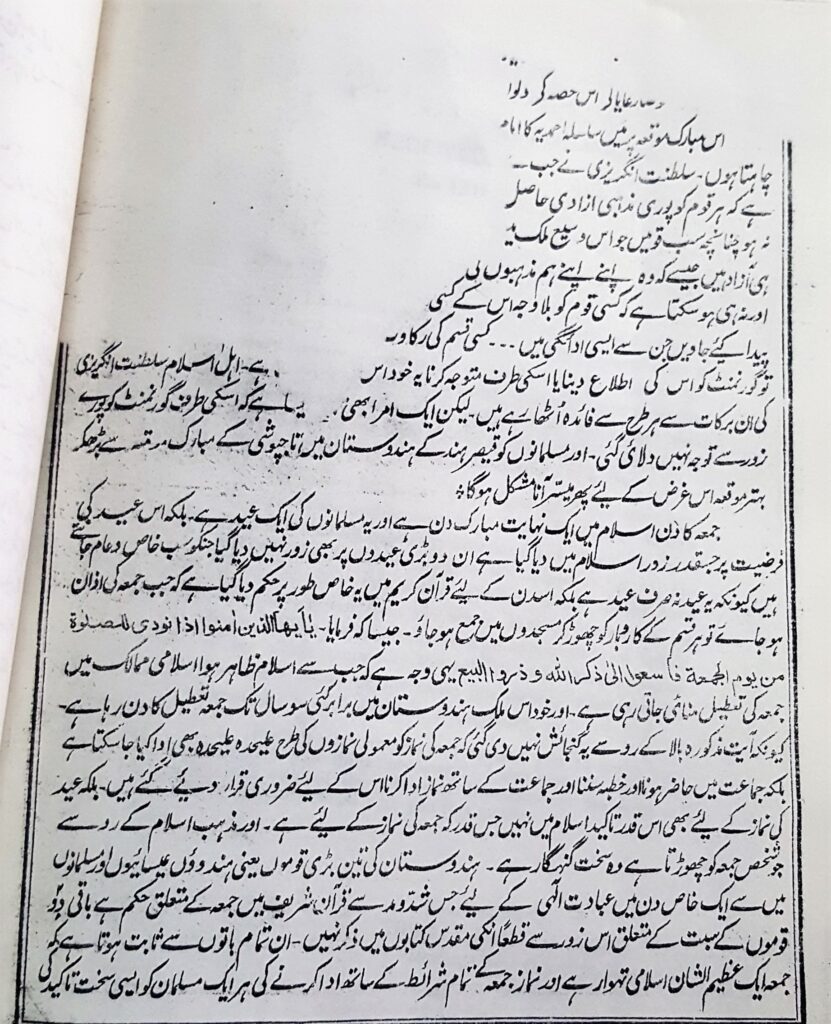 رعایا کی اس حصہ کر دلوا
اس مبارک موقعہ پر میں سلسلہ احمدیہ کا امام
چاہتا ہوں۔ سلطنت انگریزی نے جب
ہے کہ ہر قوم کو پوری مذہبی ازادی حاصل
نہ ہو چنانچہ سب قومیں جو اس وسیع ملک
ہی آزاد ہیں جیسے کہ وہ اپنے اپنے ہم مذہبوں
اور نہ ہی ہو سکتا ہے کہ کسی قوم کو بلا وجہ اس کے کسی
پیدا کیئے جاویں جن سے ایسی ادائگی میں ... کسی قسم کی رکاوٹ
ہے۔ اہل اسلام سلطنت انگریزی
تو گورنمنٹ کو اس کی اطلاع دینا یا اسکی طرف متوجہ کرنا یہ خود اس
کی ان برکات سے ہر طرح سے فائدہ اُٹھا رہے ہیں۔ لیکن ایک امر ابھی ہے کہ اسکی طرف گورنمنٹ کو پورے
زور سے توجہ نہیں دلائی گئی۔ اور مسلمانوں کو قیصر ہند کے ہندوستان میں تاجپوشی کے مبارک سے بڑھکر
بہتر موقعہ اس غرض کے لیئے پھر میسر آنا مشکل ہوگا
جمعہ کا دن اسلام میں ایک نہایت مبارک دن ہے اور یہ مسلمانوں کی ایک عید ہے۔ بلکہ اس عید کی
فرضیت پر جسقدر زور اسلام میں دیا گیا ہے ان دو بڑی عیدوں پر بھی زور نہیں دیا گیا جنکو سب خاص و عام جانتے
ہیں کیونکہ یہ عید نہ صرف عید ہے بلکہ اسدن کے لیئے قرآن کریم میں یہ خاص طور پر حکم دیا گیا ہے کہ جب جمعہ کی اذان
ہو جائے تو ہر قسم کے کاروبار کو چھوڑ کر مسجدوں میں جمع ہو جاؤ۔ جیسا کہ فرمایا۔ یٰایھا الذین اٰمنوا اذا نودی للصلوٰۃ
من یوم الجمعۃ فاسعوا الیٰ ذکر اللہ و ذروا البیع یہی وجہ ہے کہ جب سے اسلام ظاہر ہوا اسلامی ممالک میں
جمعہ کی تعطیل منائی جاتی رہی ہے۔ اور خود اس ملک ہندوستان میں برابر کئی سو سال تک جمعہ تعطیل کا دن رہا ہے۔
کیونکہ آیت مذکورہ بالا کے رو سے یہ گنجائش نہیں دی گئی کہ جمعہ کی نماز کو معمولی نمازوں کی طرح علیحدہ علیحدہ بھی ادا کیا جا سکتا ہے
بلکہ جماعت میں حاضر ہونا اور خطبہ سننا اور جماعت کے ساتھ نماز ادا کرنا اس کے لیئے ضروری قرار دیئے گئے ہیں۔ بلکہ عید
کی نماز کے لیئے بھی اس قدر تاکید اسلام میں نہیں جس قدر کہ جمعہ کی نماز کے لیئے ہے۔ اور مذہب اسلام کے رو سے
جو شخص جمعہ کو چھوڑتا ہے وہ سخت گنہگار ہے۔ ہندوستان کی تین بڑی قوموں یعنی ہندوؤں عیسائیوں اور مسلمانوں
میں سے ایک خاص دن میں عبادت الٰہی کے لیئے جس شدّ و مد سے قرآن شریف میں جمعہ کے متعلق حکم ہے باقی دو
قوموں کے سبت کے متعلق اس زور سے قطعاً انکی مقدس کتابوں میں ذکر نہیں۔ ان تمام باتوں سے ثابت ہوتا ہے کہ
جمعہ ایک عظیم الشان اسلامی تہوار ہے اور نماز جمعہ کے تمام شرائط کے ساتھ ادا کرنے کی ہر ایک مسلمان کو ایسی سخت تاکید کی